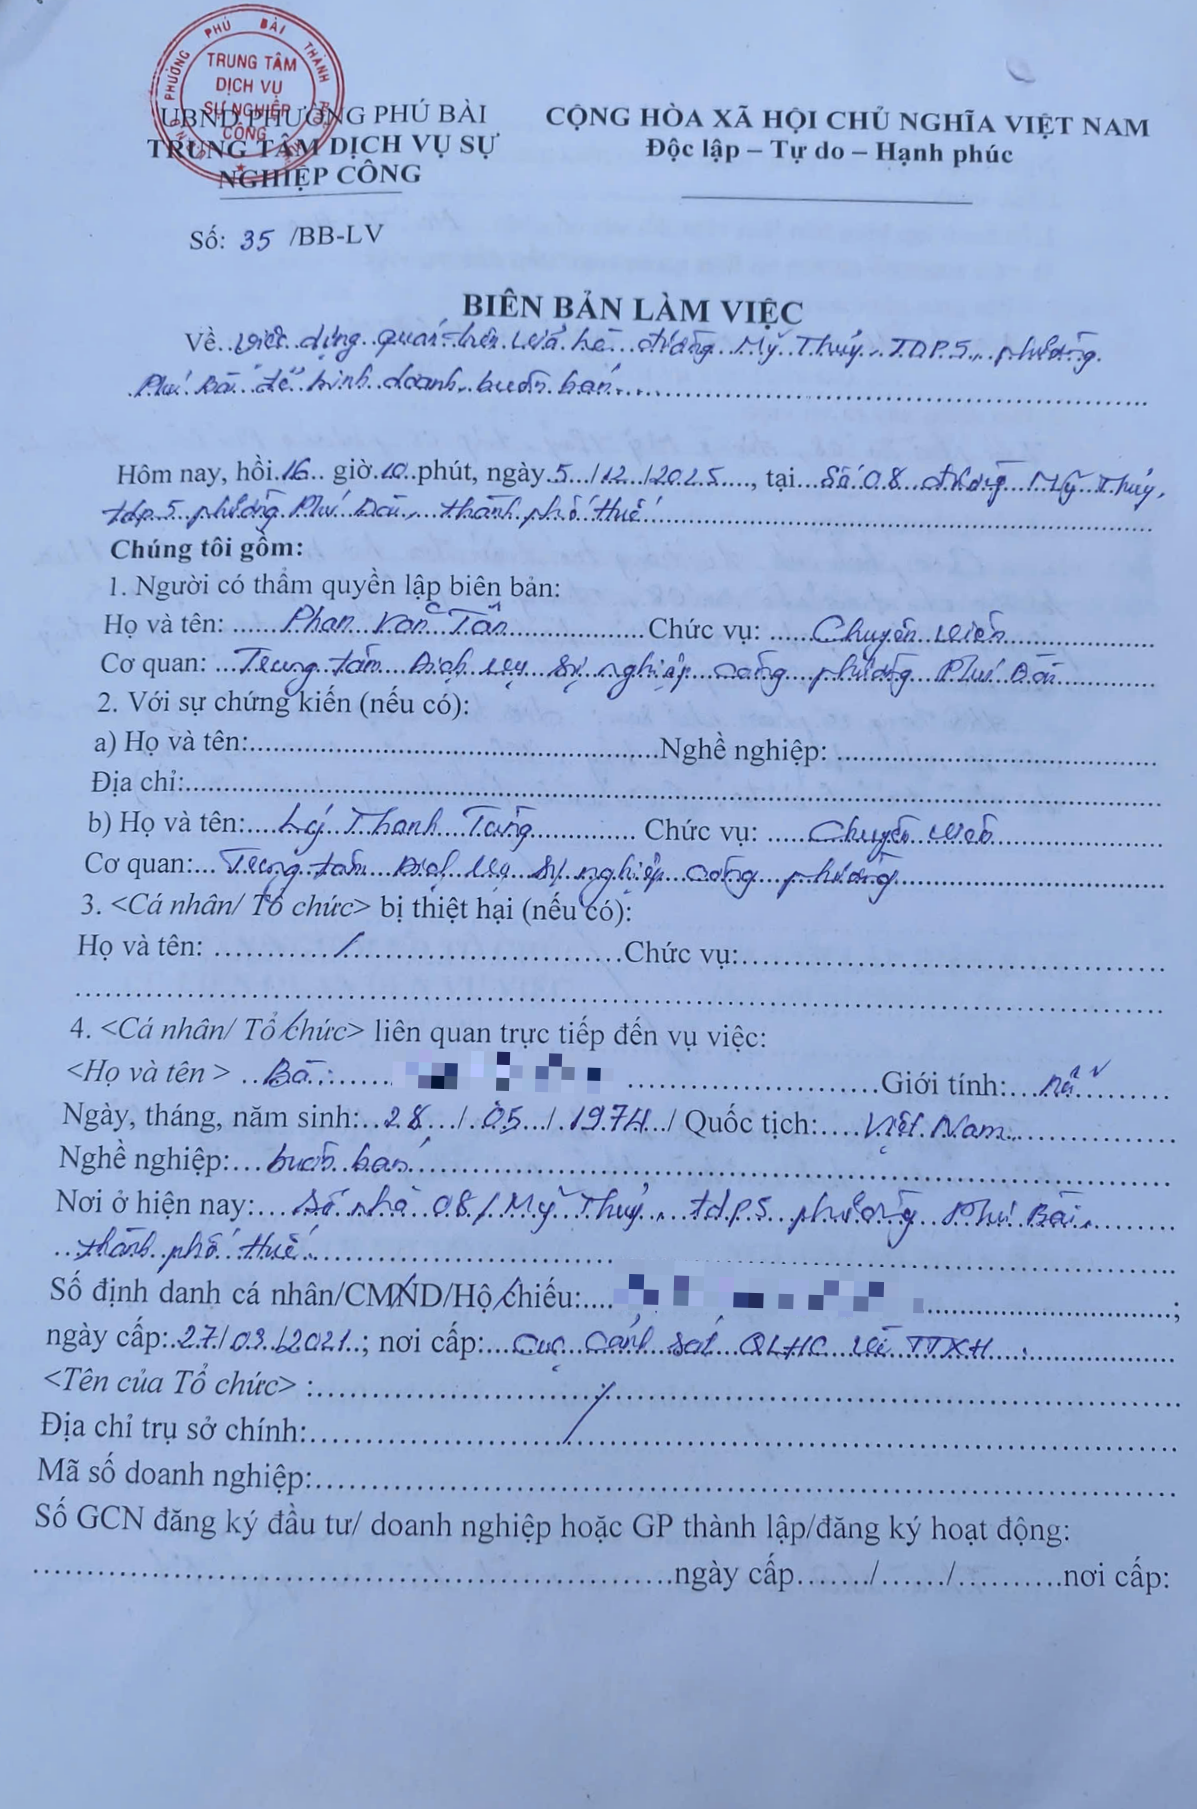 PHƯỜNG PHÚ BÀI THÀNH
TRUNG TÂM
DỊCH VỤ
SỰ NGHIỆP
CÔNG
UBND PHƯỜNG PHÚ BÀI
TRUNG TÂM DỊCH VỤ SỰ
NGHIỆP CÔNG
CỘNG HÒA XÃ HỘI CHỦ NGHĨA VIỆT NAM
Độc lập – Tự do – Hạnh phúc
Số: 35 /BB-LV
BIÊN BẢN LÀM VIỆC
Về việc dựng quán trên vỉa hè đường Mỹ Thủy, TDP.5, phường
Phú Bài để kinh doanh, buôn bán.
Hôm nay, hồi 16 giờ 10 phút, ngày 5/12/2025, tại Số 08 đường Mỹ Thủy,
tdp 5 phường Phú Bài, thành phố Huế
Chúng tôi gồm:
1. Người có thẩm quyền lập biên bản:
Họ và tên: Phan Văn Tấn Chức vụ: Chuyên viên
Cơ quan: Trung tâm Dịch vụ Sự nghiệp công phường Phú Bài
2. Với sự chứng kiến (nếu có):
a) Họ và tên: Nghề nghiệp:
Địa chỉ:
b) Họ và tên: Lý Thanh Tùng Chức vụ: Chuyên viên
Cơ quan: Trung tâm Dịch vụ Sự nghiệp công phường
3. <Cá nhân/ Tổ chức> bị thiệt hại (nếu có):
Họ và tên: / Chức vụ:
4. <Cá nhân/ Tổ chức> liên quan trực tiếp đến vụ việc:
<Họ và tên > Bà: Giới tính: nữ
Ngày, tháng, năm sinh: 28/05/1974/ Quốc tịch: Việt Nam
Nghề nghiệp: buôn bán
Nơi ở hiện nay: Số nhà 08/Mỹ Thủy, tdp5 phường Phú Bài,
thành phố Huế
Số định danh cá nhân/CMND/Hộ chiếu: ;
ngày cấp: 27/03/2021; nơi cấp: Cục Cảnh sát QLHC về TTXH
<Tên của Tổ chức> :
Địa chỉ trụ sở chính:
Mã số doanh nghiệp:
Số GCN đăng ký đầu tư/ doanh nghiệp hoặc GP thành lập/đăng ký hoạt động:
ngày cấp……./……/……….nơi cấp: